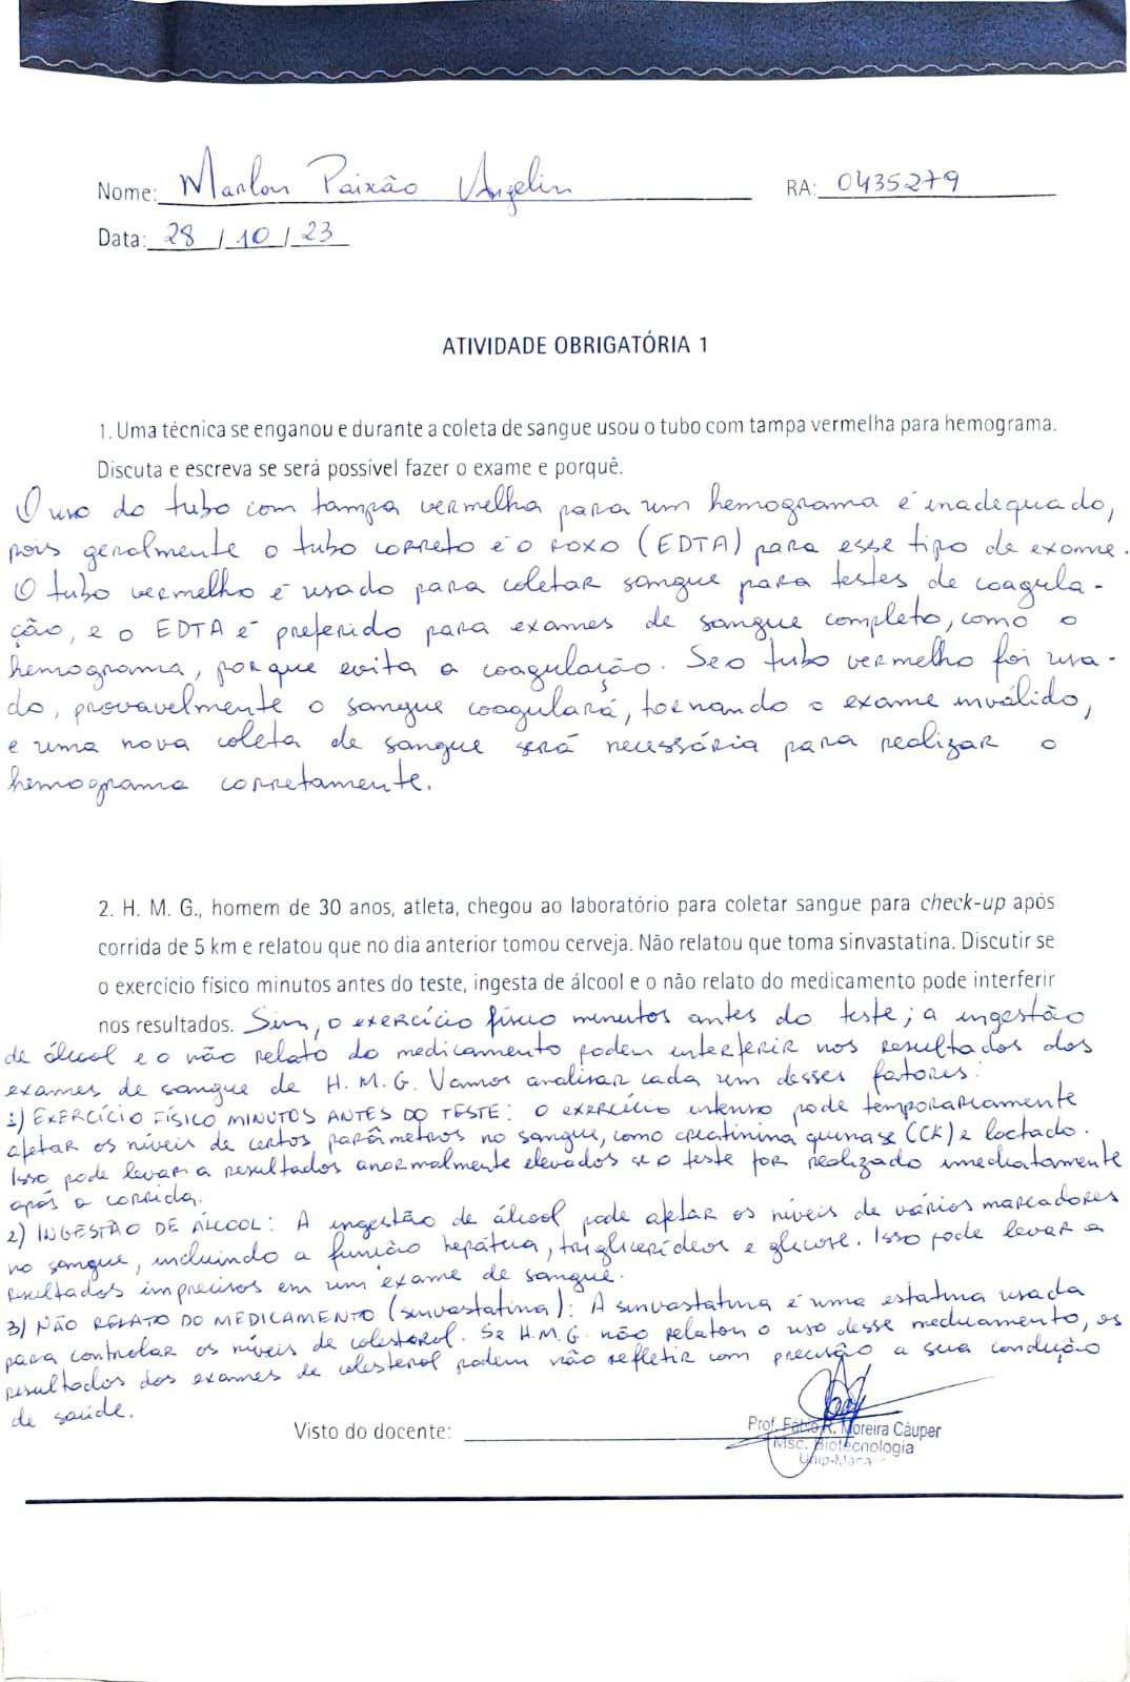 Nome: Marlon Paixão Angelin RA: 0435279
Data: 28 / 10 / 23
ATIVIDADE OBRIGATÓRIA 1
1. Uma técnica se enganou e durante a coleta de sangue usou o tubo com tampa vermelha para hemograma.
Discuta e escreva se será possível fazer o exame e porquê.
O uso do tubo com tampa vermelha para um hemograma é inadequado,
pois geralmente o tubo correto é o roxo (EDTA) para esse tipo de exame.
O tubo vermelho é usado para coletar sangue para testes de coagula-
ção, e o EDTA é preferido para exames de sangue completo, como o
hemograma, porque evita a coagulação. Se o tubo vermelho foi usa-
do, provavelmente o sangue coagulará, tornando o exame inválido,
e uma nova coleta de sangue será necessária para realizar o
hemograma corretamente.
2. H. M. G., homem de 30 anos, atleta, chegou ao laboratório para coletar sangue para check-up após
corrida de 5 km e relatou que no dia anterior tomou cerveja. Não relatou que toma sinvastatina. Discutir se
o exercício físico minutos antes do teste, ingesta de álcool e o não relato do medicamento pode interferir
nos resultados. Sim, o exercício físico minutos antes do teste; a ingestão
de álcool e o não relato do medicamento podem interferir nos resultados dos
exames de sangue de H. M. G. Vamos analisar cada um desses fatores:
1) EXERCÍCIO FÍSICO MINUTOS ANTES DO TESTE: O exercício intenso pode temporariamente
afetar os níveis de certos parâmetros no sangue, como creatinina quinase (CK) e lactado.
Isso pode levar a resultados anormalmente elevados se o teste for realizado imediatamente
após a corrida.
2) INGESTÃO DE ÁLCOOL: A ingestão de álcool pode afetar os níveis de vários marcadores
no sangue, incluindo a função hepática, triglicerídeos e glicose. Isso pode levar a
resultados imprecisos em um exame de sangue.
3) NÃO RELATO DO MEDICAMENTO (sinvastatina): A sinvastatina é uma estatina usada
para controlar os níveis de colesterol. Se H.M.G. não relatou o uso desse medicamento, os
resultados dos exames de colesterol podem não refletir com precisão a sua condição
de saúde.
Visto do docente:
Prof. Fábio R. Moreira Cáuper
Msc. Biotecnologia